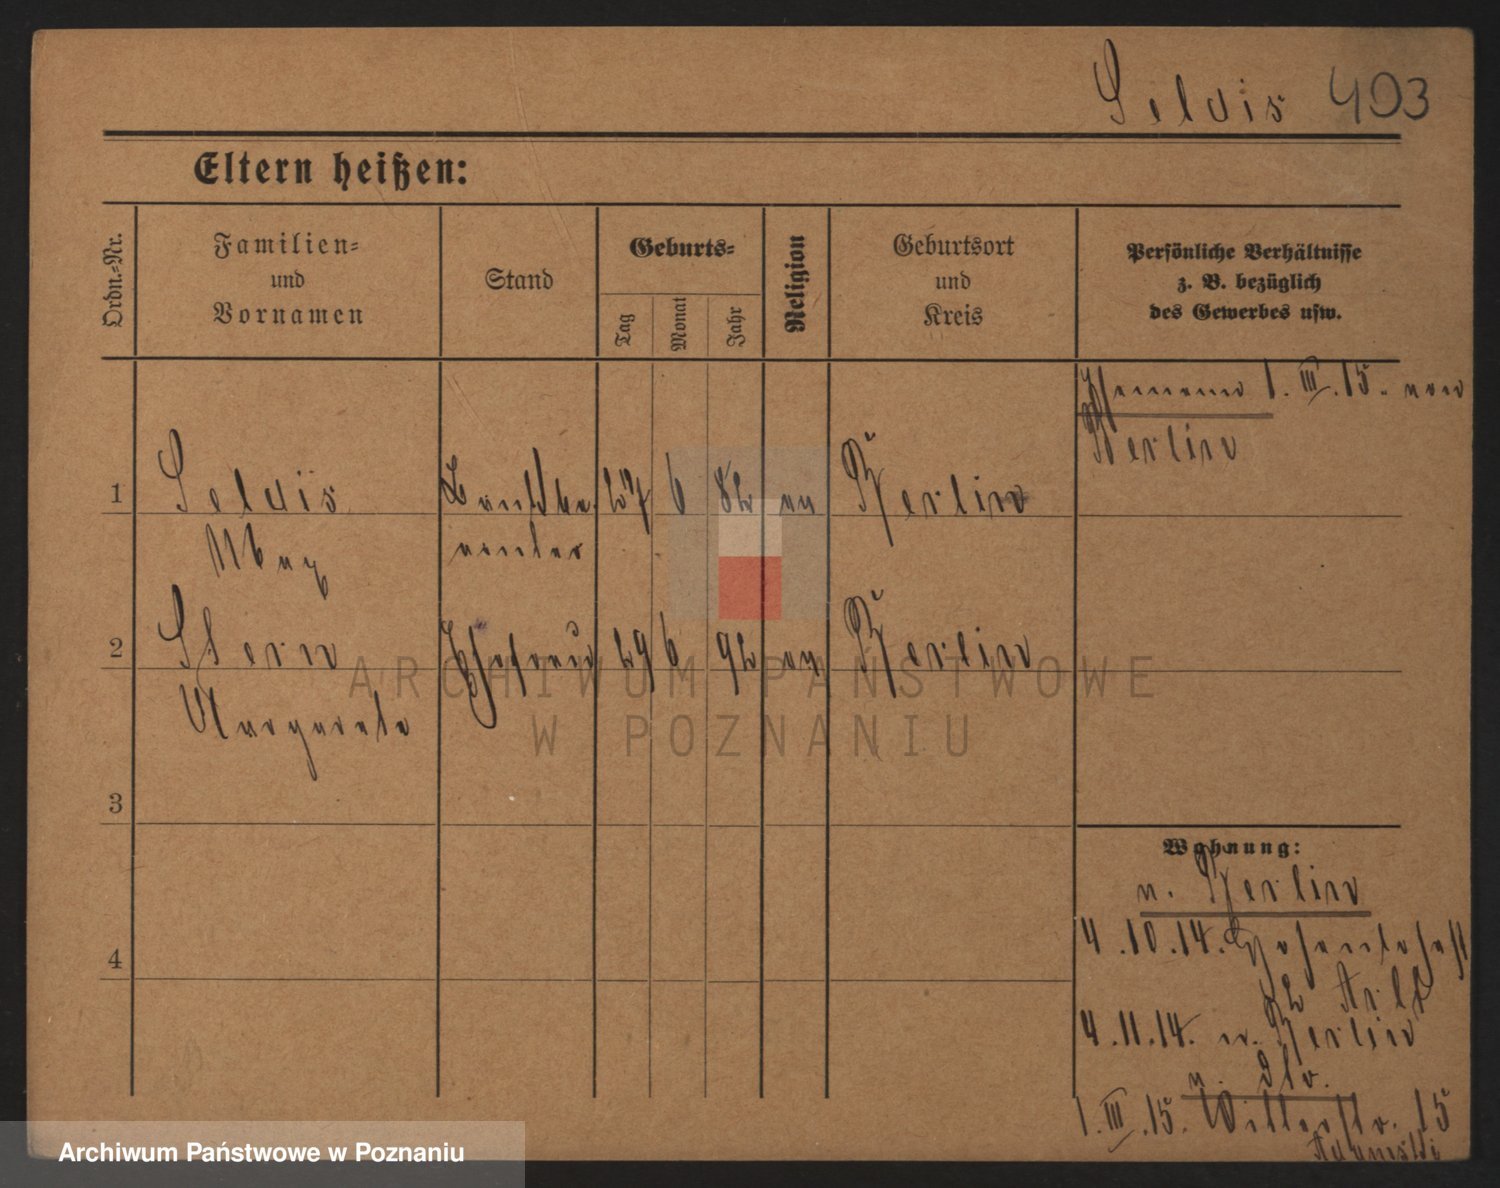 Selvis 403
Eltern heißen:
Ordn.-Nr.
Familien-
und
Vornamen
Stand
Geburts-
Tag
Monat
Jahr
Religion
Geburtsort
und
Kreis
Persönliche Verhältnisse
z. B. bezüglich
des Gewerbes usw.
1. III. 15. von
Berlin
1 Selvis 27 6 82 ev Berlin
Max beamter
2 Stern Ehefrau 29 6 92 ev Berlin
Margarete
3
4
Wohnung:
n. Berlin
4.10.14.
4.11.14. v. Berlin
1. III. 15. 15
ARCHIWUM PAŃSTWOWE
W POZNANIU
Archiwum Państwowe w Poznaniu